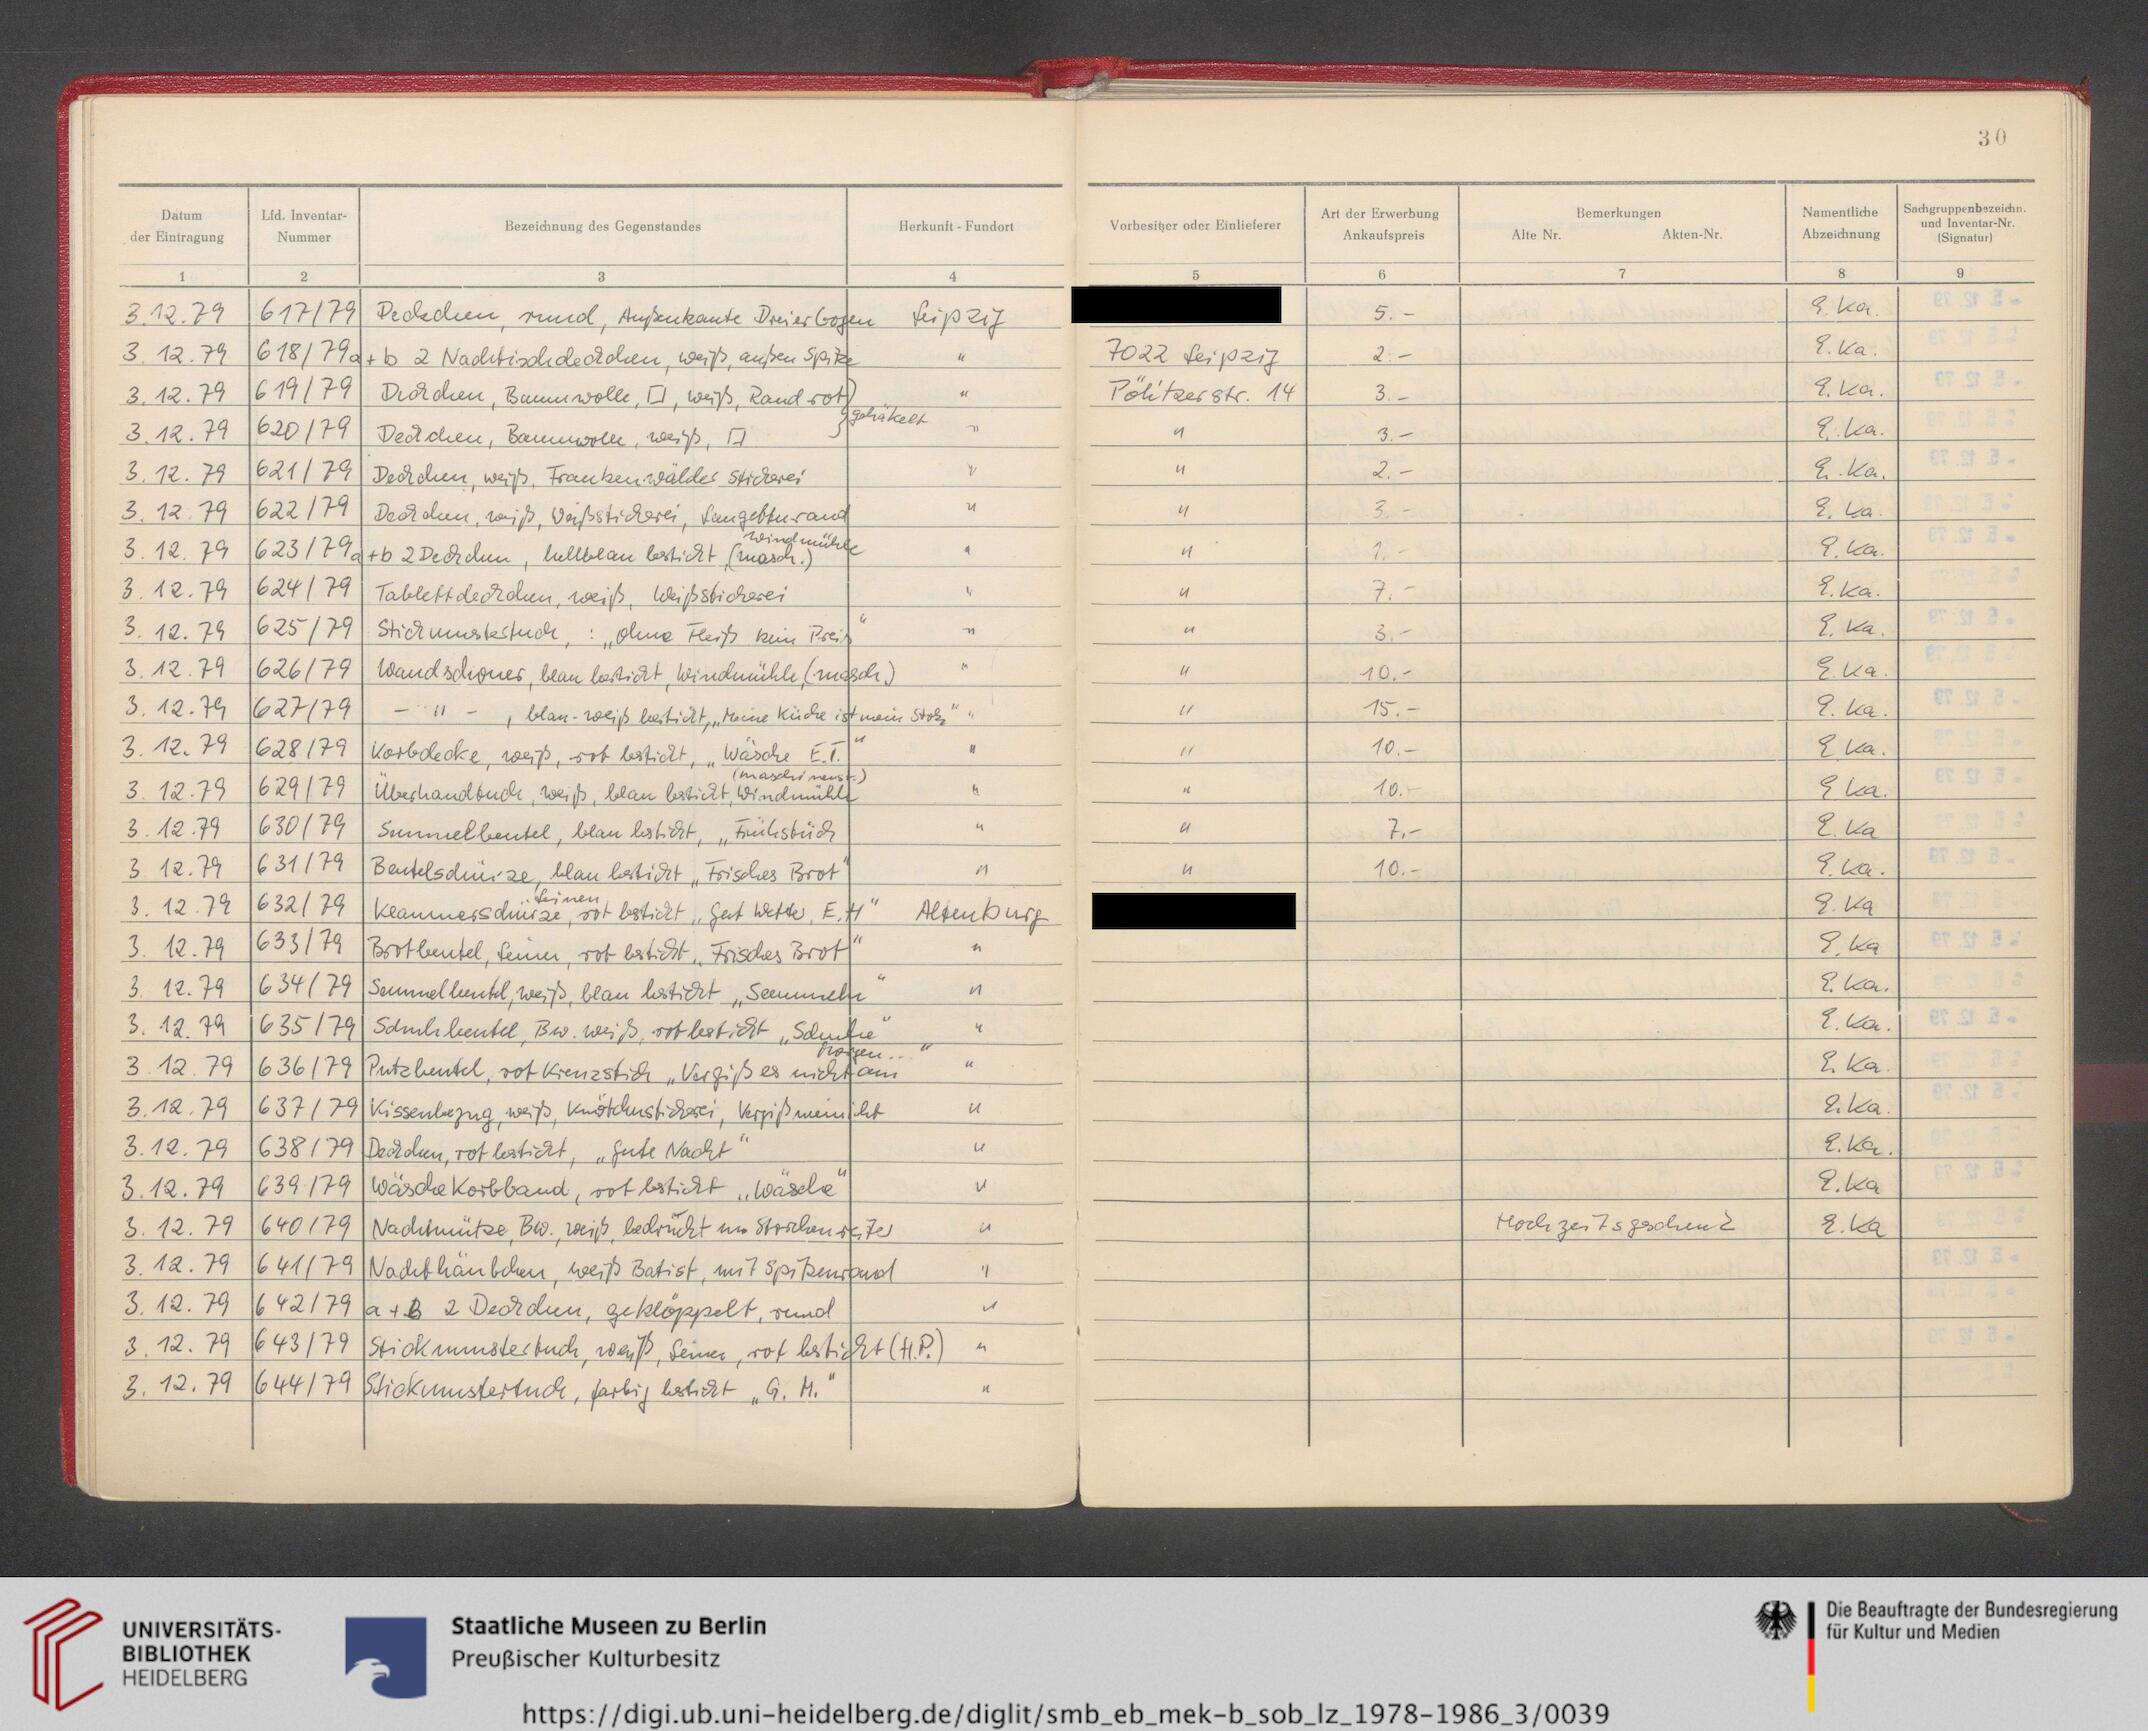 30
Datum der Eintragung | Lfd. Inventar-Nummer | Bezeichnung des Gegenstandes | Herkunft - Fundort | Vorbesitzer oder Einlieferer | Art der Erwerbung Ankaufspreis | Bemerkungen Alte Nr. Akten-Nr. | Namentliche Abzeichnung | Sachgruppenbezeichn. und Inventar-Nr. (Signatur)
1 2 3 4 5 6 7 8 9
3.12.79 617/79 Deckchen, rund, Außenkante Dreierbogen Leipzig 5.- E.Ka.
3.12.79 618/79 a+b 2 Nachtischdeckchen, weiß, außen Spitze " 7022 Leipzig 2.- E.Ka.
3.12.79 619/79 Deckchen, Baumwolle, □, weiß, Rand rot } gehäkelt " Pölitzerstr. 14 3.- E.Ka.
3.12.79 620/79 Deckchen, Baumwolle, weiß, □ " " 3.- E.Ka.
3.12.79 621/79 Deckchen, weiß, Frankenwälder Stickerei " " 2.- E.Ka.
3.12.79 622/79 Deckchen, weiß, Weißstickerei, Langettenrand " " 3.- E.Ka.
3.12.79 623/79 a+b 2 Deckchen, hellblau bestickt, Windmühle (masch.) " " 1.- E.Ka.
3.12.79 624/79 Tablettdeckchen, weiß, Weißstickerei " " 7.- E.Ka.
3.12.79 625/79 Stickmustertuch, : „ohne Fleiß kein Preis“ " " 3.- E.Ka.
3.12.79 626/79 Wandschoner, blau bestickt, Windmühle, (masch.) " " 10.- E.Ka.
3.12.79 627/79 - " - , blau-weiß bestickt, „Meine Küche ist mein Stolz“ " " 15.- E.Ka.
3.12.79 628/79 Korbdecke, weiß, rot bestickt, „Wäsche E.T.“ " " 10.- E.Ka.
3.12.79 629/79 Überhandtuch, weiß, blau bestickt, Windmühle (maschinenst.) " " 10.- E.Ka.
3.12.79 630/79 Semmelbeutel, blau bestickt, „Frühstück " " 7.- E.Ka
3.12.79 631/79 Beutelschürze, blau bestickt „Frisches Brot“ " " 10.- E.Ka.
3.12.79 632/79 Klammerschürze, Leinen, rot bestickt „Gut Wetter, E.H“ Altenburg E.Ka
3.12.79 633/79 Brotbeutel, Leinen, rot bestickt „Frisches Brot“ " E.Ka
3.12.79 634/79 Semmelbeutel, weiß, blau bestickt „Semmeln“ " E.Ka.
3.12.79 635/79 Schuhbeutel, Bw. weiß, rot bestickt „Schuhe“ " E.Ka.
3.12.79 636/79 Putzbeutel, rot Kreuzstich „Vergiß es nicht am Morgen...“ " E.Ka.
3.12.79 637/79 Kissenbezug, weiß, Knötchenstickerei, Vergißmeinicht " E.Ka.
3.12.79 638/79 Deckchen, rot bestickt, „Gute Nacht“ " E.Ka.
3.12.79 639/79 Wäschekorbband, rot bestickt „Wäsche“ " E.Ka
3.12.79 640/79 Nachtmütze, Bw., weiß, bedruckt m. Storchenreiter " Hochzeitsgeschenk E.Ka
3.12.79 641/79 Nachthäubchen, weiß Batist, mit Spitzenrand "
3.12.79 642/79 a+b 2 Deckchen, geklöppelt, rund "
3.12.79 643/79 Stickmustertuch, weiß, Leinen, rot bestickt (H.P.) "
3.12.79 644/79 Stickmustertuch, farbig bestickt „G. M.“ "
UNIVERSITÄTS-
BIBLIOTHEK
HEIDELBERG
Staatliche Museen zu Berlin
Preußischer Kulturbesitz
Die Beauftragte der Bundesregierung
für Kultur und Medien
https://digi.ub.uni-heidelberg.de/diglit/smb_eb_mek-b_sob_lz_1978-1986_3/0039